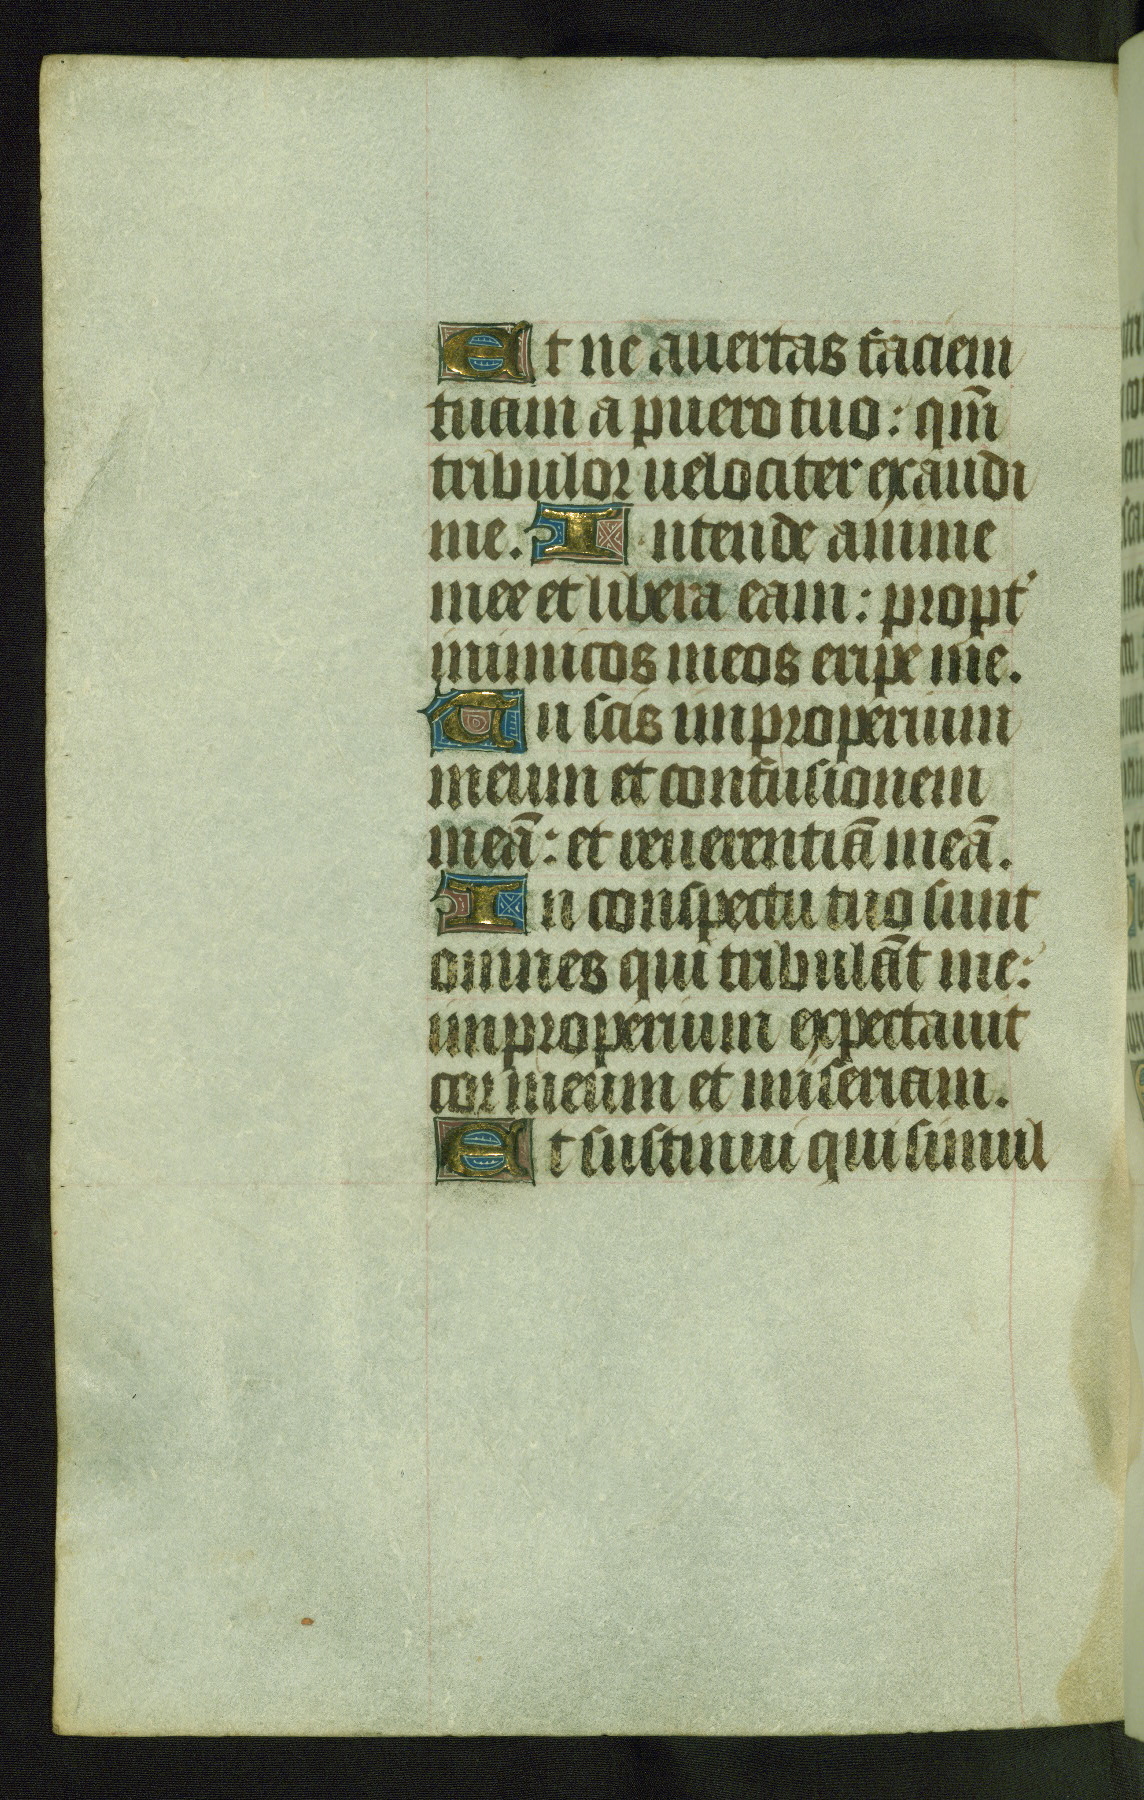 Et ne auertas faciem
tuam a puero tuo: qm̄
tribulor uelociter exaudi
me. Intende anime
mee et libera eam: propt᾿
inimicos meos eripe me.
Tu scis improperium
meum et confusionem
meā: et reuerentiā meā.
In conspectu tuo sunt
omnes qui tribulāt me:
improperium expectauit
cor meum et miseriam.
Et sustinui qui simul